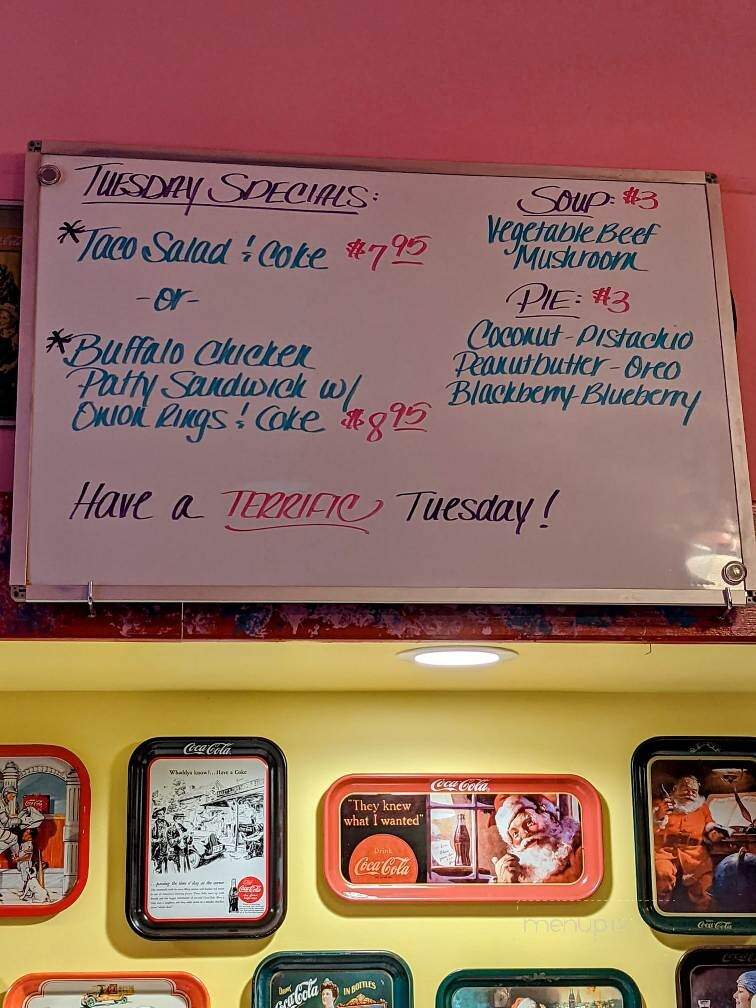 TUESDAY SPECIALS:
*Taco Salad & Coke $7 95
-or-
*Buffalo Chicken
Patty Sandwich w/
Onion Rings & Coke $8 95
Soup: $3
Vegetable Beef
Mushroom
PIE: $3
Coconut-Pistachio
Peanutbutter-Oreo
Blackberry-Blueberry
Have a TERRIFIC Tuesday!
Coca-Cola
Whaddya know?...Have a Coke
...passing the time o' day at the corner
Coca-Cola
Coca-Cola
"They knew
what I wanted"
Drink
Coca-Cola
Coca-Cola
Drink
Coca-Cola
IN BOTTLES
menupix